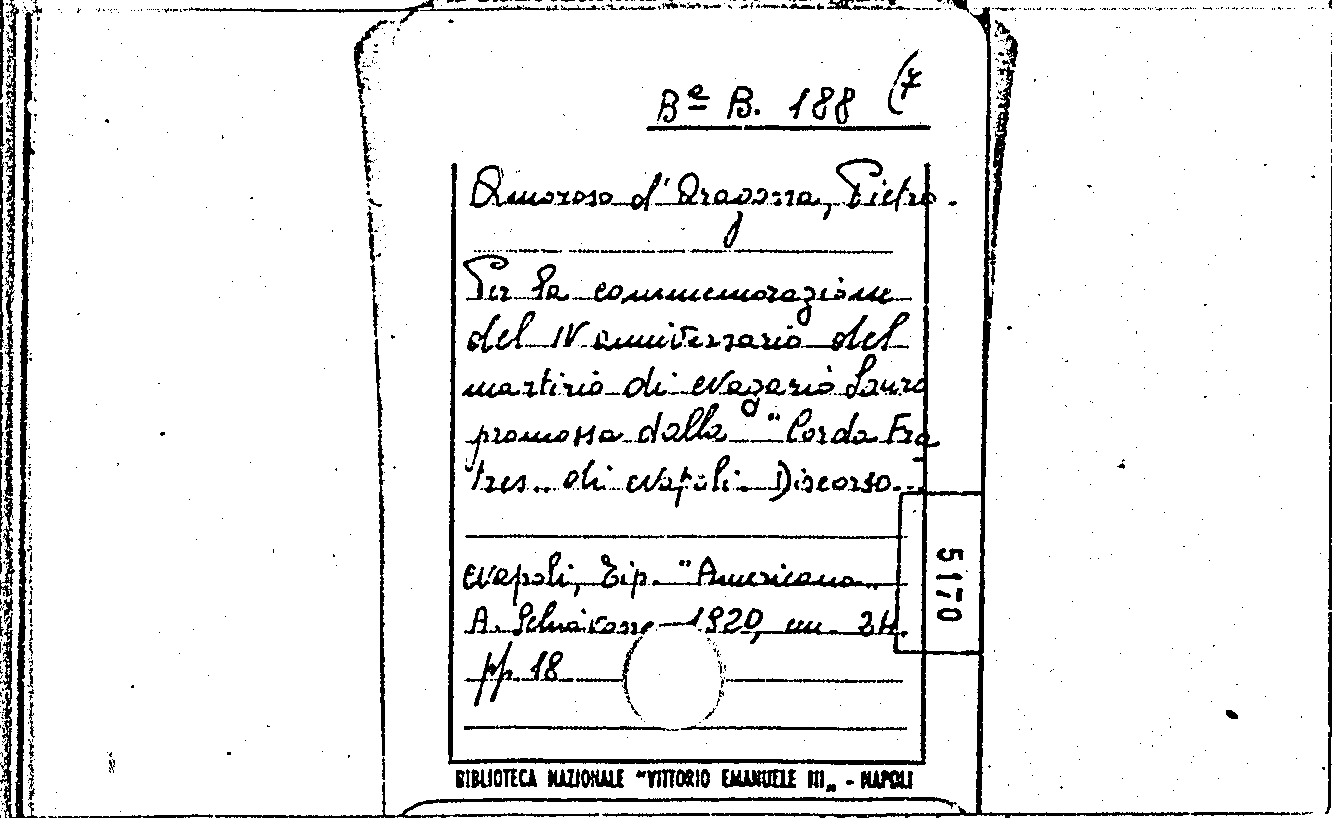 Bª B. 188 (7
Amoroso d'Aragona, Pietro.
Per la commemorazione
del IV anniversario del
martirio di Nazario Sauro
promossa dalla "Corda Fra
tres„ di Napoli. Discorso.
Napoli, Tip. "Americana„
A. 1920, in 24.
pp. 18
5170
BIBLIOTECA NAZIONALE "VITTORIO EMANUELE III„ - NAPOLI